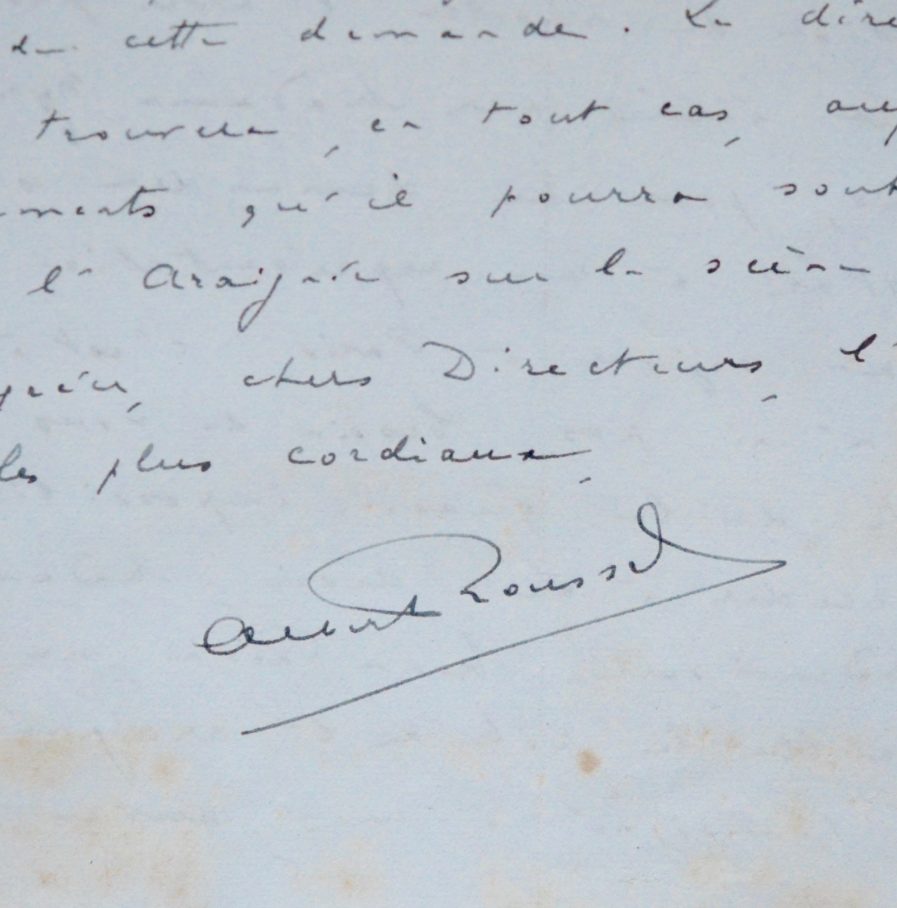 de cette demande. La dire
trouvera, en tout cas, au
ments qu'il pourra sou
l'Araignée sur la scène
gréer, chers Directeurs, l'
les plus cordiaux,
Albert Roussel